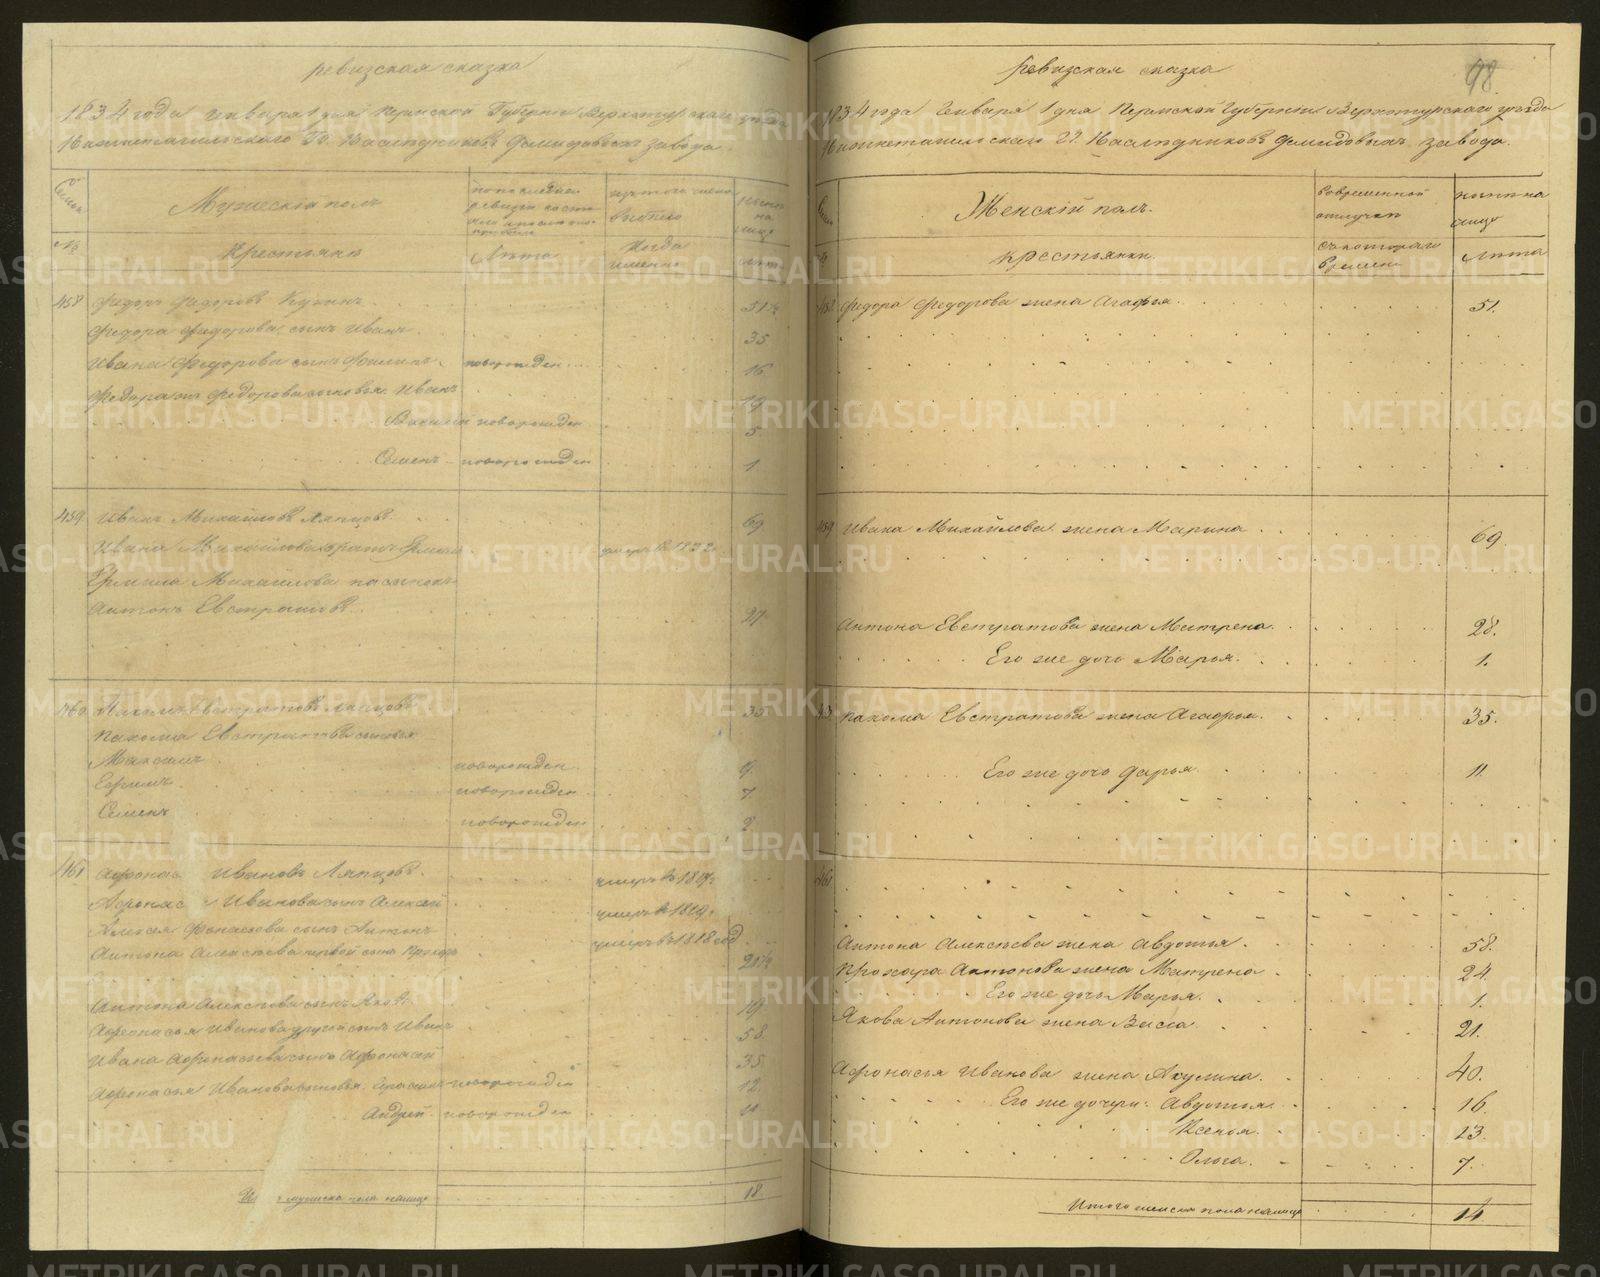 ревизская сказка
1834 года генваря 1 дня Пермской Губернии Верхотурскаго уезда
Нижнетагильскаго Гг. Наследниковъ Демидовыхъ завода
Семьи
Мужескій полъ
по последней ревизіи состояло
изъ того числа выбыло
ныне на лицо
№
Крестьяне
Лѣта
Когда именно
лѣта
458 Федоръ Федоровъ 51½
Федора Федорова сынъ Иванъ 35
Ивана Федорова сынъ Филипъ новорожден 16
Федора Федорова сыновья Иванъ 19
Василій новорожден 5
Семенъ новорожден 1
459 Иванъ Михайловъ Ляпцовъ 69
Ивана Михайлова братъ умеръ въ 1822
Михайлова пасынокъ
Антонъ Евстратовъ 27
460 Пахомъ Евстратовъ Ляпцовъ 35
Пахома Евстратова сыновья
Максимъ новорожден 9
Ефимъ новорожден 7
Семенъ новорожден 2
461 Афонас Ивановъ Ляпцовъ умеръ в 1819
Афонас Иванова сынъ Алексей умеръ в 1819
Алексея Фонасьева сынъ Антонъ умеръ въ 1818 год
Антона Алексеева первой сынъ Прохоръ 21½
Антона Алексеева сынъ Яковъ 19
Афонасья Иванова другой сынъ Иванъ 58
Ивана Афонасьева сынъ Афонасей 35
Афонасья Иванова сыновья Герасимъ новорожден 12
Андрей новорожден 11
мужеска пола налицо 18
ревизская сказка
98
1834 года Генваря 1 дня Пермской Губерніи Верхотурскаго уезда
Нижнетагильскаго Гг. Наследниковъ Демидовыхъ завода.
Женскій полъ.
во временной отлучке
ныне на лицо
Крестьянки.
съ котораго времени
лѣта
458 Федора Федорова жена Агафья. 51.
459 Ивана Михайлова жена Марина 69
Антона Евстратова жена Матрена. 28.
Его же дочь Марья. 1.
Пахома Евстратова жена Агафья. 35.
Его же дочь Дарья. 11.
461
Антона Алексеева жена Авдотья. 58.
Прохора Антонова жена Матрена 24.
Его же дочь Марья. 1.
Якова Антонова жена Васса. 21.
Афонасья Иванова жена Акулина. 40.
Его же дочери: Авдотья. 16.
Ксенья. 13.
Ольга. 7.
Итого женска пола налицо 14
METRIKI.GASO-URAL.RU